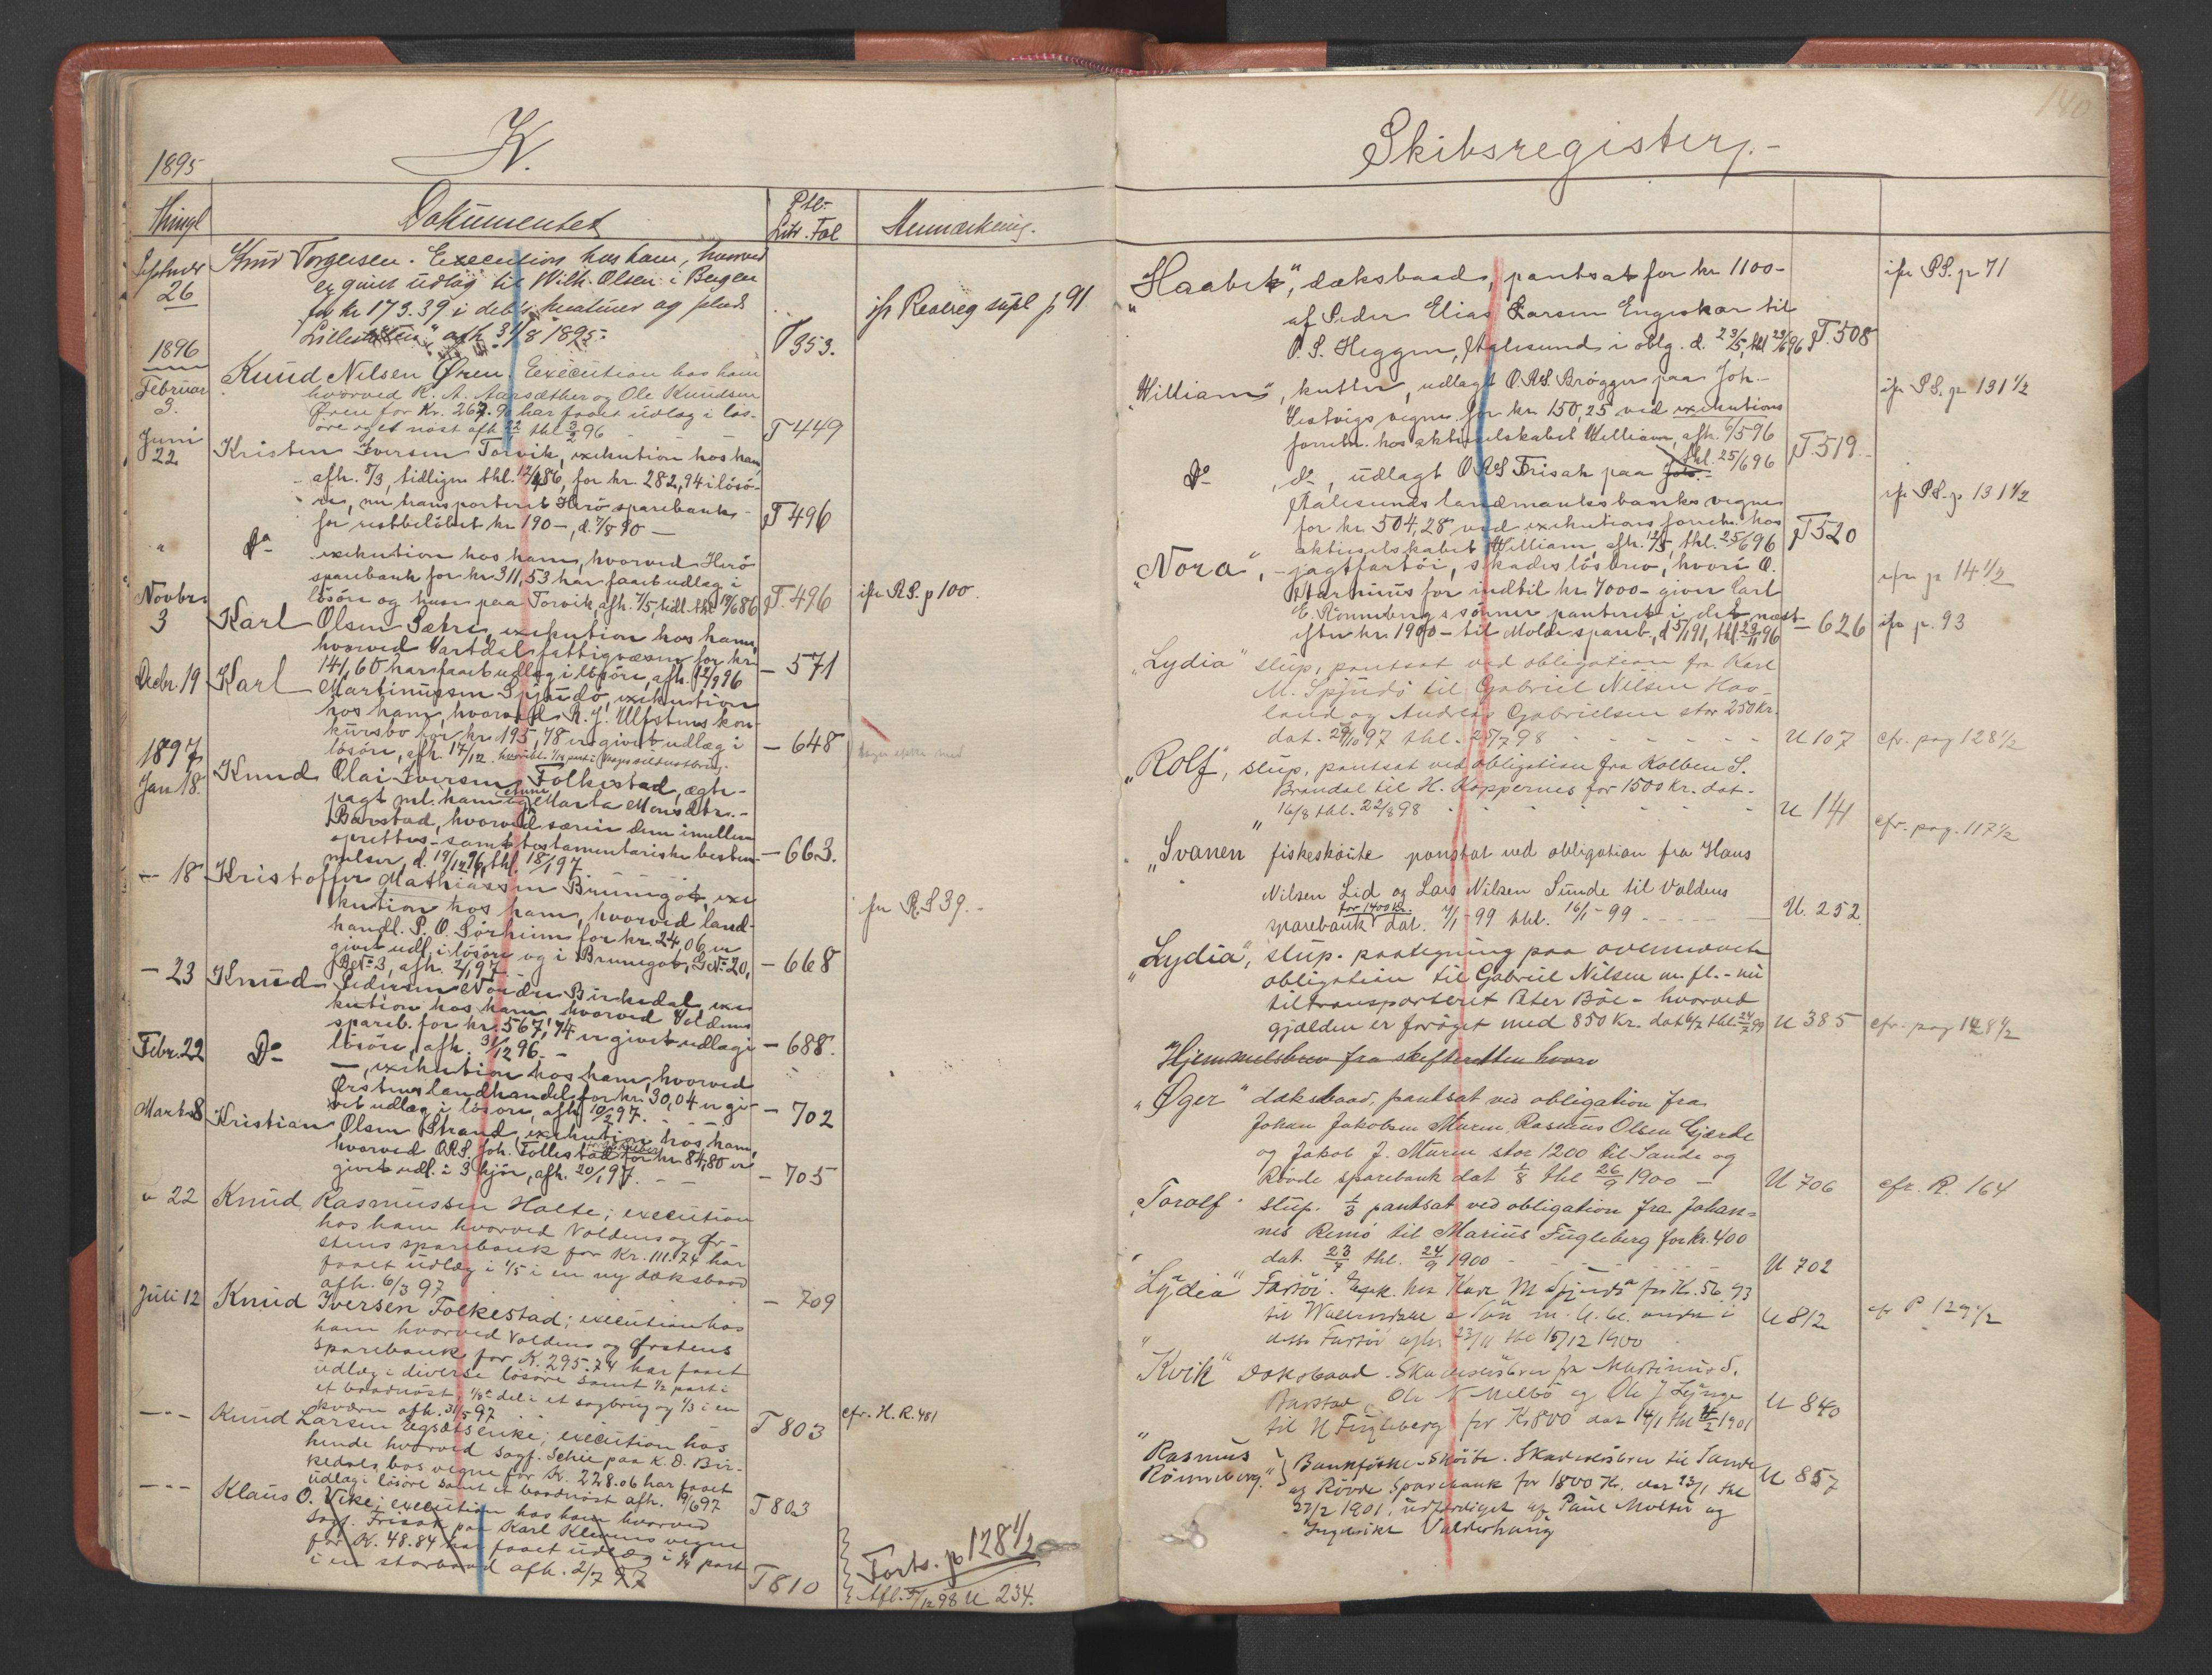 K.
1895
Thingl
Dokumentet
Ptb-
Litr. Fol
Anmærkning.
Septmbr
26
Knud Torgersen. Execution hos ham, hvorved
er givet udlæg til Wilh. Olsen i Bergen
for kr 173.39 i deb's
afh. 31/8 1895.
T 353.
ifr Realreg supl p 91
1896
Februar
3.
Knud Nilsen Øren. Execution hos ham
hvorved K. A. Aarsæther og Ole Knudsen
Øren for Kr. 267.90 har faaet udlæg i løs-
øre og et nøst afh 22/1 thl 3/2 96
T 449
Juni
22
Kristen Iversen Torvik, exekution hos ham,
afh. 8/3, tidligere thl. 12/4 86, for kr 282,94 i løsø-
re, nu transporteret Herø sparebank
for restbeløbet kr 190 -, d. 7/8 90 -
T 496
"
Do
exekution hos ham, hvorved Herø
sparebank for kr 311,53 har faaet udlæg i
løsøre og huse paa Torvik, afh. 7/5, tidl. thl. 12/6 86
T. 496
ifr R.S. p 100.
Novbr.
3
Karl Olsen Sætre, exekution hos ham,
hvorved Vartdals fattigvæsen for kr
141,60 har faaet udlæg i løsøre, afh. 12/9 96
- 571
Decbr. 19
Karl Martinussen Spjudø, exekution
hos ham, hvorved R. J. Ulfstens kon-
kursbo for kr 195,78 er givet udlæg i
løsøre, afh. 17/12
- 648
1897
Jan 18.
Knud Olai Iversen Folkestad, ægte-
pagt ml. ham og Marta Monsdtr.-
Barstad, hvorved særeie dem imellem
oprettes - samt testamentariske bestem-
melser, d. 19/12 96, thl. 18/1 97
- 663.
- 18
Kristoffer Mathiassen Brunegot, exe
kution hos ham, hvorved land-
handl. P. O. Sørheim for kr. 24,06 er
givet udl. i løsøre og i Brunegot, G.No 20,
B.No 3, afh. 2/1 97
- 668
fr R.S 39.-
- 23
Knud Pedersen Nordre Birkedal, exe
kution hos ham, hvorved Voldens
spareb. for kr. 567,74 er givet udlæg i
løsøre, afh. 31/12 96. -
- 688.
Febr. 22
Do
-, exekution hos ham, hvorved
Ørstens landhandel for kr. 30,04 er gi-
vet udlæg i løsøre, afh. 10/2 97.
- 702
Marts 8
Kristian Olsen Strand, exekution hos ham,
hvorved O.R.S. Joh. Follestad for kr 84,80 er
givet udl. i 3 kjør, afh. 20/1 97.
- 705
" 22
Knud Rasmussen Holte; execution
hos ham hvorved Voldens og Ør-
stens sparebank for Kr. 111.74 har
faaet udlæg i 1/5 i en ny dæksbaad
afh. 6/3 97
- 709
Juli 12
Knud Iversen Folkestad; execution hos
ham hvorved Voldens og Ørstens
sparebank for K. 295.74 har faaet
udlæg i diverse løsøre samt 1/2 part i
et baadnøst, 1/8 del i et sagbrug og 1/3 i en
kværn afh. 31/5 97
T 803
cfr. H. R. 481
- " -
Knud Larsen Egsætseike; execution hos
hende hvorved sagf. Schie paa K. D. Bir-
kedals bos vegne for K. 228.06 har faaet
udlæg i løsøre samt et baadnøst afh. 9/6 97
T 803
- " -
Klaus O. Vike; execution hos ham hvorved
sagf. Frisak paa Karl Klevens vegne
for K. 48.84 har faaet udlæg i 1/4 part
i en storbaad afh. 2/7 97
T 810
Forts. p 128 1/2
Afl. 5/12 98 U 234.
140
Skibsregister.-
"Haabet", dæksbaad, pantsat for kr 1100-
af Peder Elias Larsen Engeskar til
O. S. Heggen, Aalesund i oblg. d. 23/5, thl 23/6 96
T. 508
ifr P.S. p 71
"William", kutter, udlagt O.R.S. Brøgger paa Joh.
Vestvigs vegne for kr 150,25 ved exekutions
forretn. hos aktieselskabet William, afh. 6/5 96
thl. 25/6 96
T. 519.
ifr P.S. p 131 1/2
Do, do, udlagt O.R.S Frisak paa Joh.-
Aalesunds landmandsbanks vegne
for kr 504,28 ved exekutions forretn. hos
aktieselskabet William, afh. 12/5, thl. 25/6 96
T 520
ifr P.S. p 131 1/2
"Nora", - jagtfartøi, skadesløsbrev, hvori O.
Marhuus for indtil kr 7000 - giver Carl
E. Rønnebergs sønner panteret i det næst
efter kr 1900 - til Molde spareb., d 5/1 91, thl 23/11 96
- 626
ifr p 14 1/2
ifr p. 93
"Lydia" slup, pantsat ved obligation fra Karl
M. Spjudø til Gabriel Nilsen Hov-
land og Andreas Gabrielsen stor 250 Kr.
dat. 29/10 97 thl. 25/7 98
U 107
cfr. pag 128 1/2
"Rolf", slup, pantsat ved obligation fra Kolben S.
Brandal til H. Koppernes for 1500 kr. dat.
16/8 thl. 22/8 98
U 141
cfr. pag. 117 1/2
"Svanen" fiskeskøite pantsat ved obligation fra Hans
Nilsen Lid og Lars Nilsen Sunde til Voldens
for 1400 kr.
sparebank dat. 7/1 - 99 thl. 16/1 - 99
U. 252
"Lydia", slup. paategning paa ovennævnte
obligation til Gabriel Nilsen m. fl. - nu
tiltransporteret Peter Bøe - hvorved
gjælden er forøget med 850 Kr. dat 6/7 thl 24/7 99
U 385
cfr. pag 128 1/2
Hjemmelsbrev fra skifteretten hvori
"Øger" dæksbaad, pantsat ved obligation fra
Johan Jakobsen Muren, Rasmus Olsen Gjærde
og Jakob J. Muren stor 1200 til Sande og
Røvde sparebank dat 1/8 thl 26/9 1900 -
U 706
cfr. R. 164
"Torolf" slup. 1/3 pantsat ved obligation fra Johan-
nes Remø til Marius Fugleberg for kr. 400
dat. 23/7 thl. 24/9 1900
U 702
"Lydia" Fartøi. Exek. hos Karl M Spjudø for K. 56 93
til
dette Fartøi afh 23/11 thl 15/12 1900
U 812
cfr P 129 1/2
"Kvik" Dæksbaad. Skadesløsbrev fra Martinus S.
Barstad, Ole N Melbø og Ole J Lynge
til M Fugleberg for Kr 800 dat 14/1 thl 4/2 1901
U 840
"Rasmus
Rønneberg" Bankfiske-Skøite. Skadesløsbrev til Sande
og Røvde Sparebank for 1800 K. dat 23/1 thl
27/2 1901, udfærdiget af Paul Moltu og
Ingebrikt Valderhaug
U 857